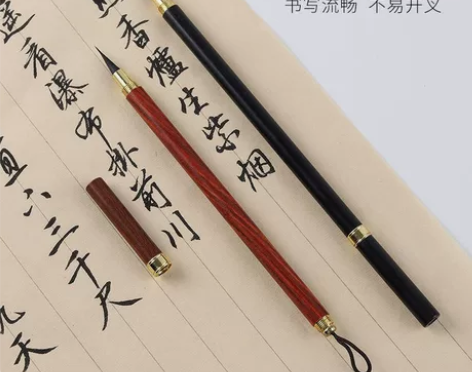 书写流畅 不易开叉
香爐生紫烟
遥看瀑布掛前川
直下三千尺
九天